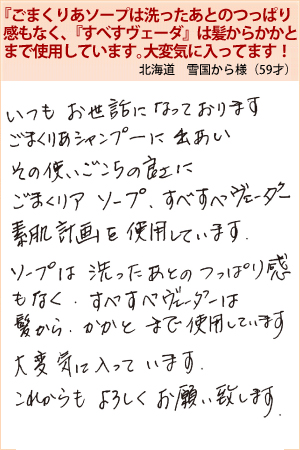 『ごまくりあソープは洗ったあとのつっぱり
感もなく、『すべすヴェーダ』は髪からかかと
まで使用しています。大変気に入ってます！
北海道　雪国から様（59才）
いつも お世話に なっております
ごまくりあシャンプーに 出あい
その使いごこちの良さに
ごまくりア ソープ、すべすべヴェーダー
素肌計画を使用しています.
ソープは 洗ったあとの つっぱり感
もなく. すべすべヴェーダーは
髪から. かかと まで 使用しています
大変気に入って います.
これからも よろしく お願い致します.